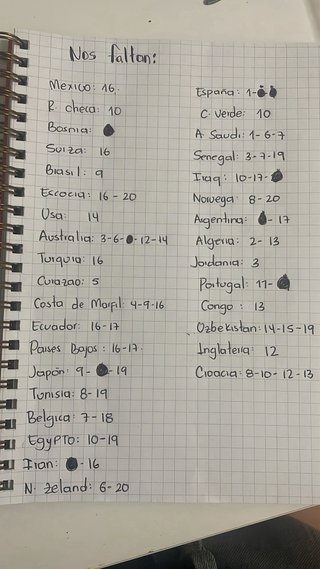 Nos faltan:
Mexico: 16.
R. checa: 10
Bosnia:
Suiza: 16
Brasil: 9
Escocia: 16-20
Usa: 14
Australia: 3-6- -12-14
Turquia: 16
Curazao: 5
Costa de Marfil: 4-9-16
Ecuador: 16-17
Paises Bajos: 16-17.
Japón: 9- -19
Tunisia: 8-19
Belgica: 7-18
EgyPTO: 10-19
Iran: -16
N. Zeland: 6-20
España: 1-
C. Verde: 10
A. Saudi: 1-6-7
Senegal: 3-7-19
Iraq: 10-17-
Noruega: 8-20
Argentina: -17
Algeria: 2-13
Jordania: 3
Portugal: 11-
Congo: 13
Uzbekistan: 14-15-19
Inglaterra: 12
Croacia: 8-10-12-13